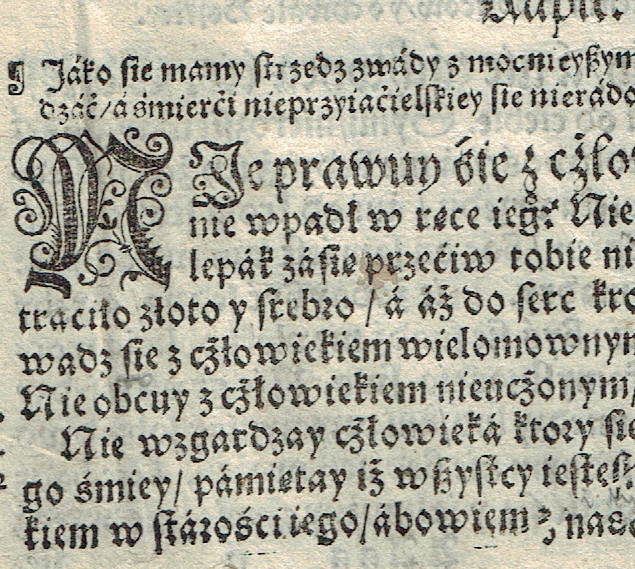 Kapit.
¶ Jáko ſie mamy ſtrzedz zwády z mocnieyßym
dzáć/ á śmierći nieprzyiaćielſkiey ſie nierádo
NJe prawuy śie z cżło
nie wpadł w ręce iegꝛ Nie
lepák záſię przećiw tobie ni
tráciło złoto y ſrebro / á áż do ſerc kro
wadz ſie z cżłowiekiem wielomownym
Nie obcuy z cżłowiekiem nieucżonym/
Nie wzgardzay cżłowieká ktory ſie
go śmiey/ pámiętay iż wßyſtcy ieſteſ
kiem w ſtárości iego/ ábowiem z nas